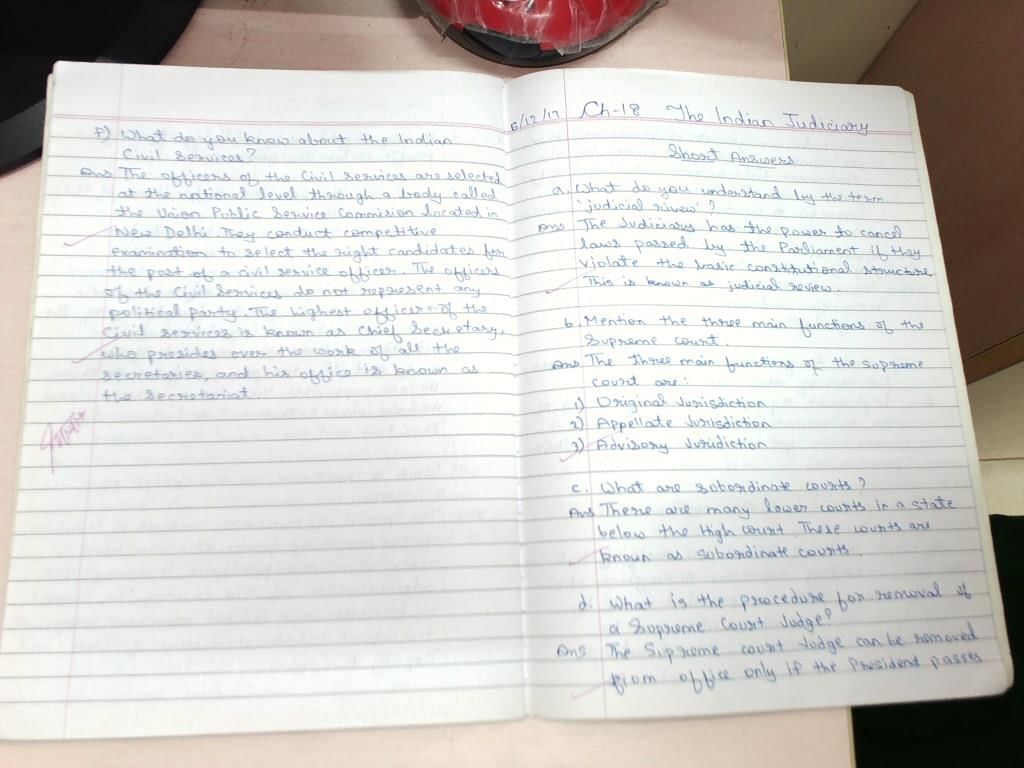 F) What do you know about the Indian
Civil Services?
Ans The officers of the Civil services are selected
at the national level through a body called
the Union Public Service Commision located in
New Delhi. They conduct competitive
examination to select the right candidates for
the post of a civil service officer. The officers
of the Civil Services do not represent any
political party. The highest officer of the
Civil services is known as Chief Secretary,
who presides over the work of all the
secretaries, and his office is known as
the Secretariat.
6/12/17 Ch-18 The Indian Judiciary
Short Answers
a. What do you understand by the term
'judicial riview'?
Ans The Judiciary has the power to cancel
laws passed by the Parliament if they
violate the basic constitutional structure
This is known as judicial review.
b. Mention the three main functions of the
Supreme court.
Ans The three main functions of the supreme
court are:
1) Original Jurisdiction
2) Appellate Jurisdiction
3) Advisory Jurisdiction
c. What are subordinate courts?
Ans There are many lower courts in a state
below the High court. These courts are
known as subordinate courts.
d. What is the procedure for removal of
a Supreme Court Judge?
Ans The Supreme court Judge can be removed
from office only if the President passes